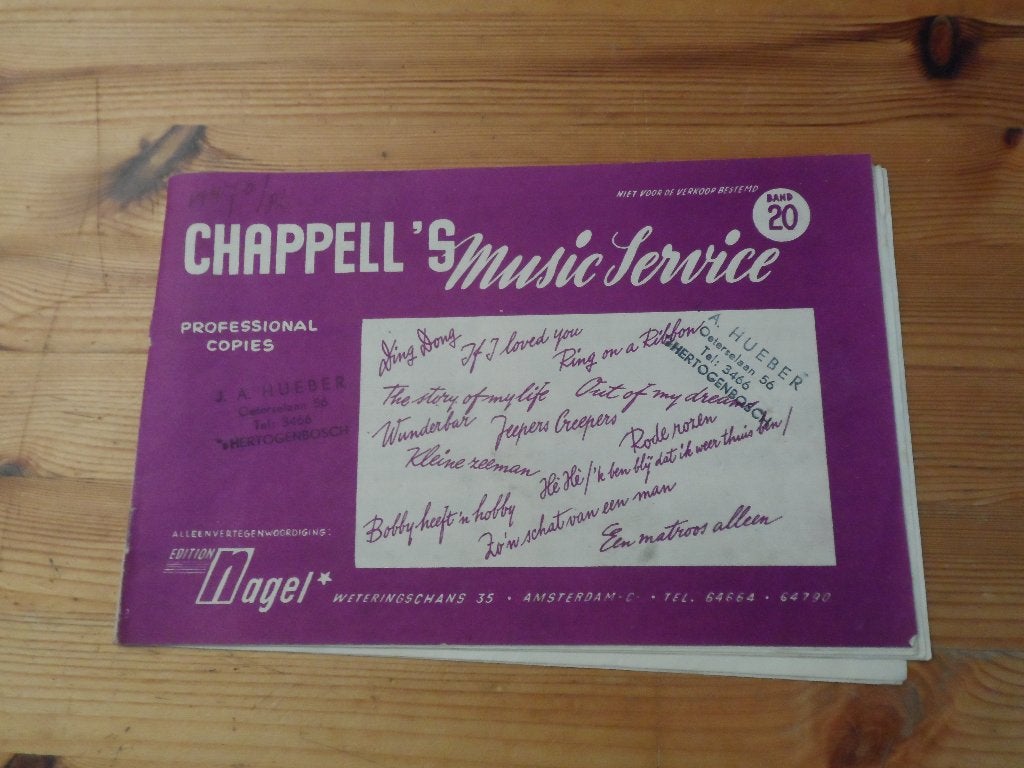 NIET VOOR DE VERKOOP BESTEMD
BAND
20
CHAPPELL'S Music Service
PROFESSIONAL
COPIES
J. A. HUEBER
Oeterselaan 56
Tel: 3466
'sHERTOGENBOSCH
Ding Dong
If I loved you
Ring on a Ribbon
The story of my life
Out of my dreams
Wunderbar
Jeepers Creepers
Rode rozen
Kleine zeeman
Hè Hè/'k ben blij dat ik weer thuis ben/
Bobby heeft 'n hobby
Zo'n schat van een man
Een matroos alleen
A. HUEBER
Oeterselaan 56
Tel: 3466
'sHERTOGENBOSCH
ALLEENVERTEGENWOORDIGING:
EDITION
Nagel
WETERINGSCHANS 35 · AMSTERDAM-C- · TEL. 64664 · 64790